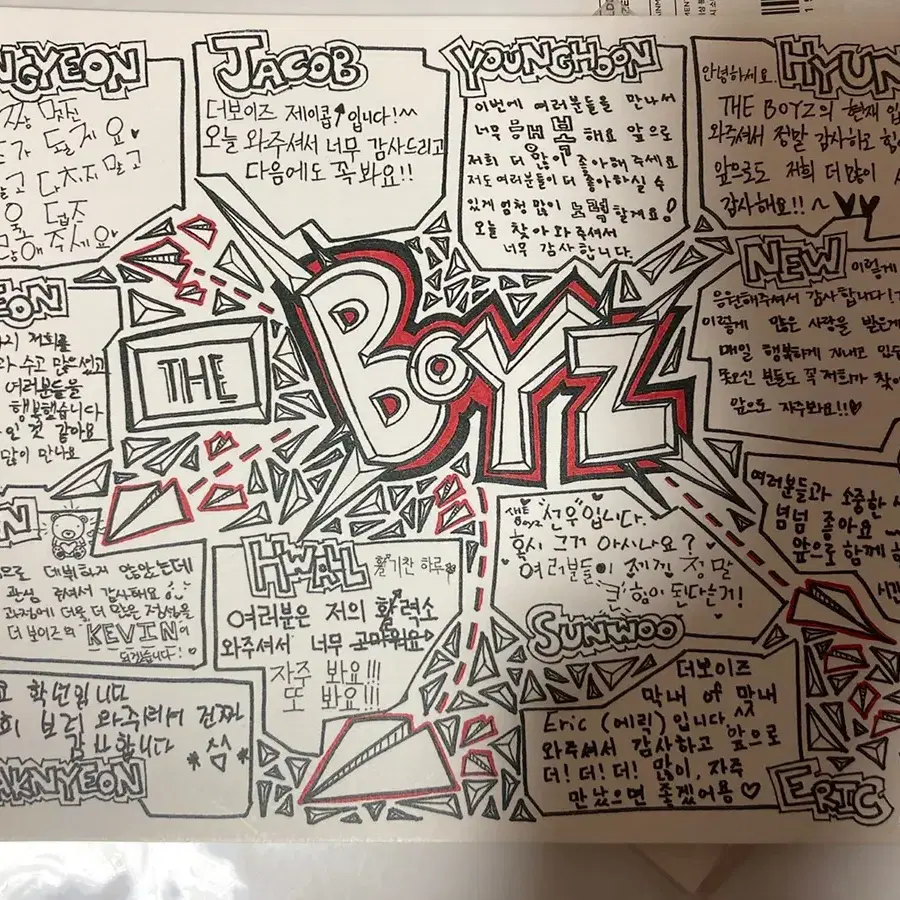 NGYEON
가 될게요
말고 다치지 말고
해 주세요
JACOB
더보이즈 제이콥 입니다!^^
오늘 와주셔서 너무 감사드리고
다음에도 꼭 봐요!!
YOUNGHOON
이번에 여러분들을 만나서
너무 행복 해요 앞으로
저희 더 많이 좋아해 주세요
저도 여러분들이 더 좋아하실 수
있게 엄청 많이 노력할게요!
오늘 찾아와주셔서
너무 감사합니다.
HYUN
안녕하세요.
THE BOYZ의 현재 입
와주셔서 정말 감사하고 힘
앞으로도 저희 더 많이
감사해요!! ~
NEW 이렇게
응원해주셔서 감사합니다!
이렇게 많은 사랑을 받은게
매일 행복하게 지내고 있
못오신 분들도 꼭 저희가 찾아
앞으로 자주봐요!!♡
EON
저희를
와 수고 많으셨고
여러분들을
행복했습니다
인 것 같아요
많이 만나요
THE
BOYZ
여러분들과 소중한
넘넘 좋아요
앞으로 함께
IN
으로 데뷔하지 않았는데
관심 주셔서 감사해요
과정에 더욱 더 많은 정성을
더 보이즈의 "KEVIN"이
되겠습니다!
HWALL 활기찬 하루
여러분은 저의 활력소
와주셔서 너무 고마워요
자주 봐요!!!
또 봐요!!!
THE BOYZ "선우"입니다.
혹시 그거 아시나요?
여러분들이 제겐 정말
큰 힘이 된다는거!
SUNWOO
학년입니다
보러 와주셔서 진짜
감사합니다
AKNYEON
더보이즈
막내 of 막내
Eric (에릭) 입니다. ^^
와주셔서 감사하고 앞으로
더! 더! 더! 많이, 자주
만났으면 좋겠어용 ♡
ERIC